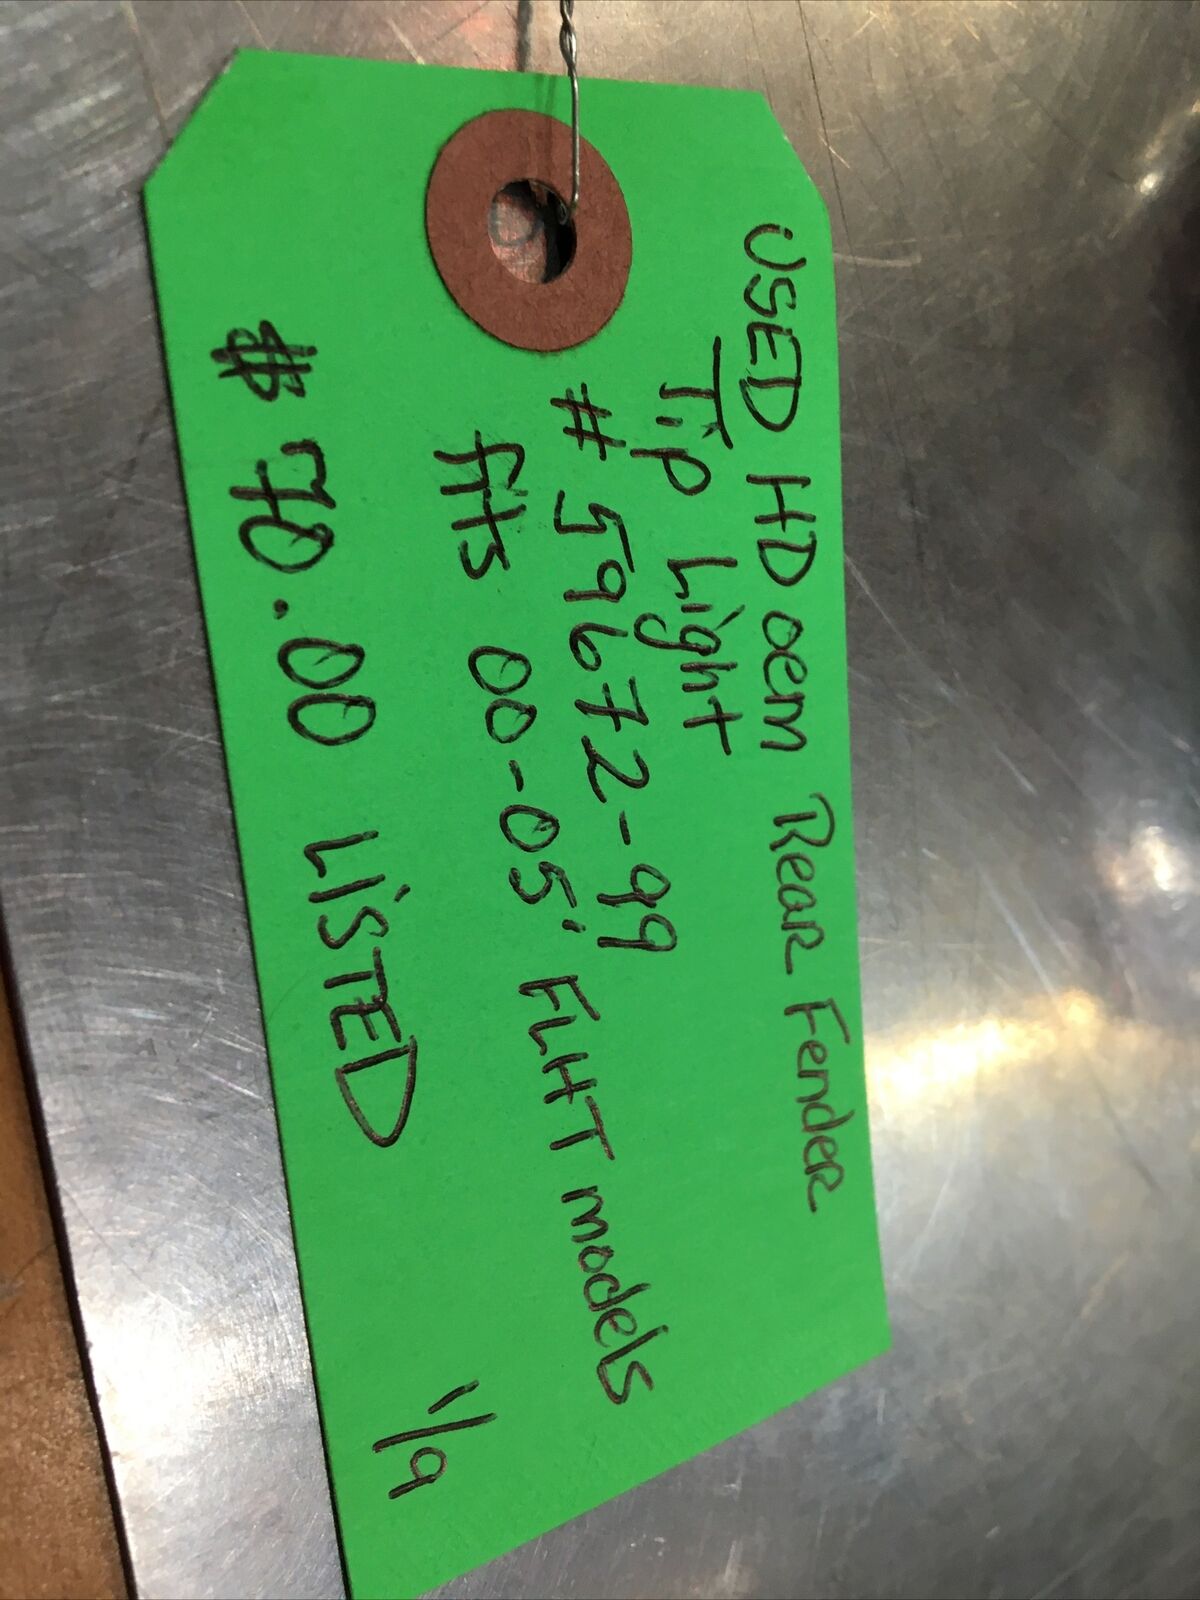 USED HD oem Rear Fender
Tip Light
# 59672-99
fits 00-05' FLHT models
$ 70.00 LiSTED
1/9